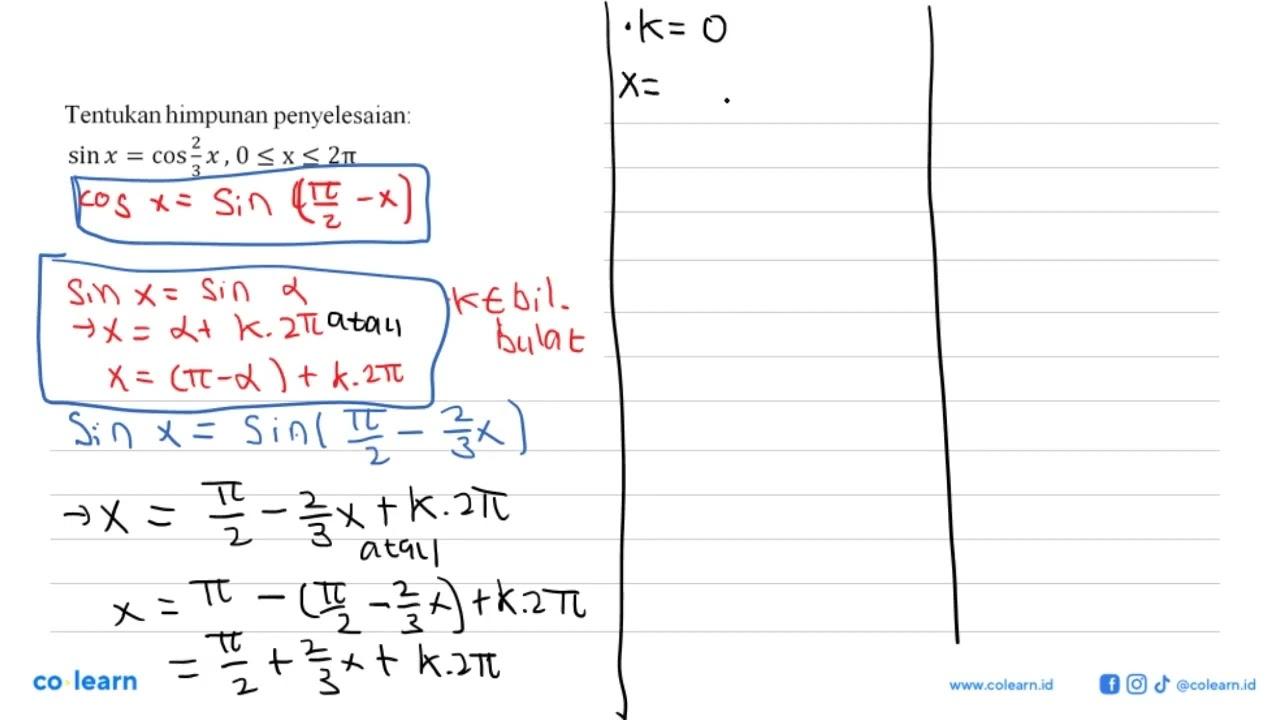 Tentukan himpunan penyelesaian:
sin x = cos 2/3 x , 0 ≤ x ≤ 2π
cos x = sin (π/2 - x)
sin x = sin α
→ x = α + k. 2π atau
x = (π - α) + k. 2π
k ∈ bil.
bulat
sin x = sin( π/2 - 2/3 x )
→ x = π/2 - 2/3 x + k. 2π
atau
x = π - (π/2 - 2/3 x) + k. 2π
= π/2 + 2/3 x + k. 2π
• k = 0
x = .
co·learn
www.colearn.id
@colearn.id